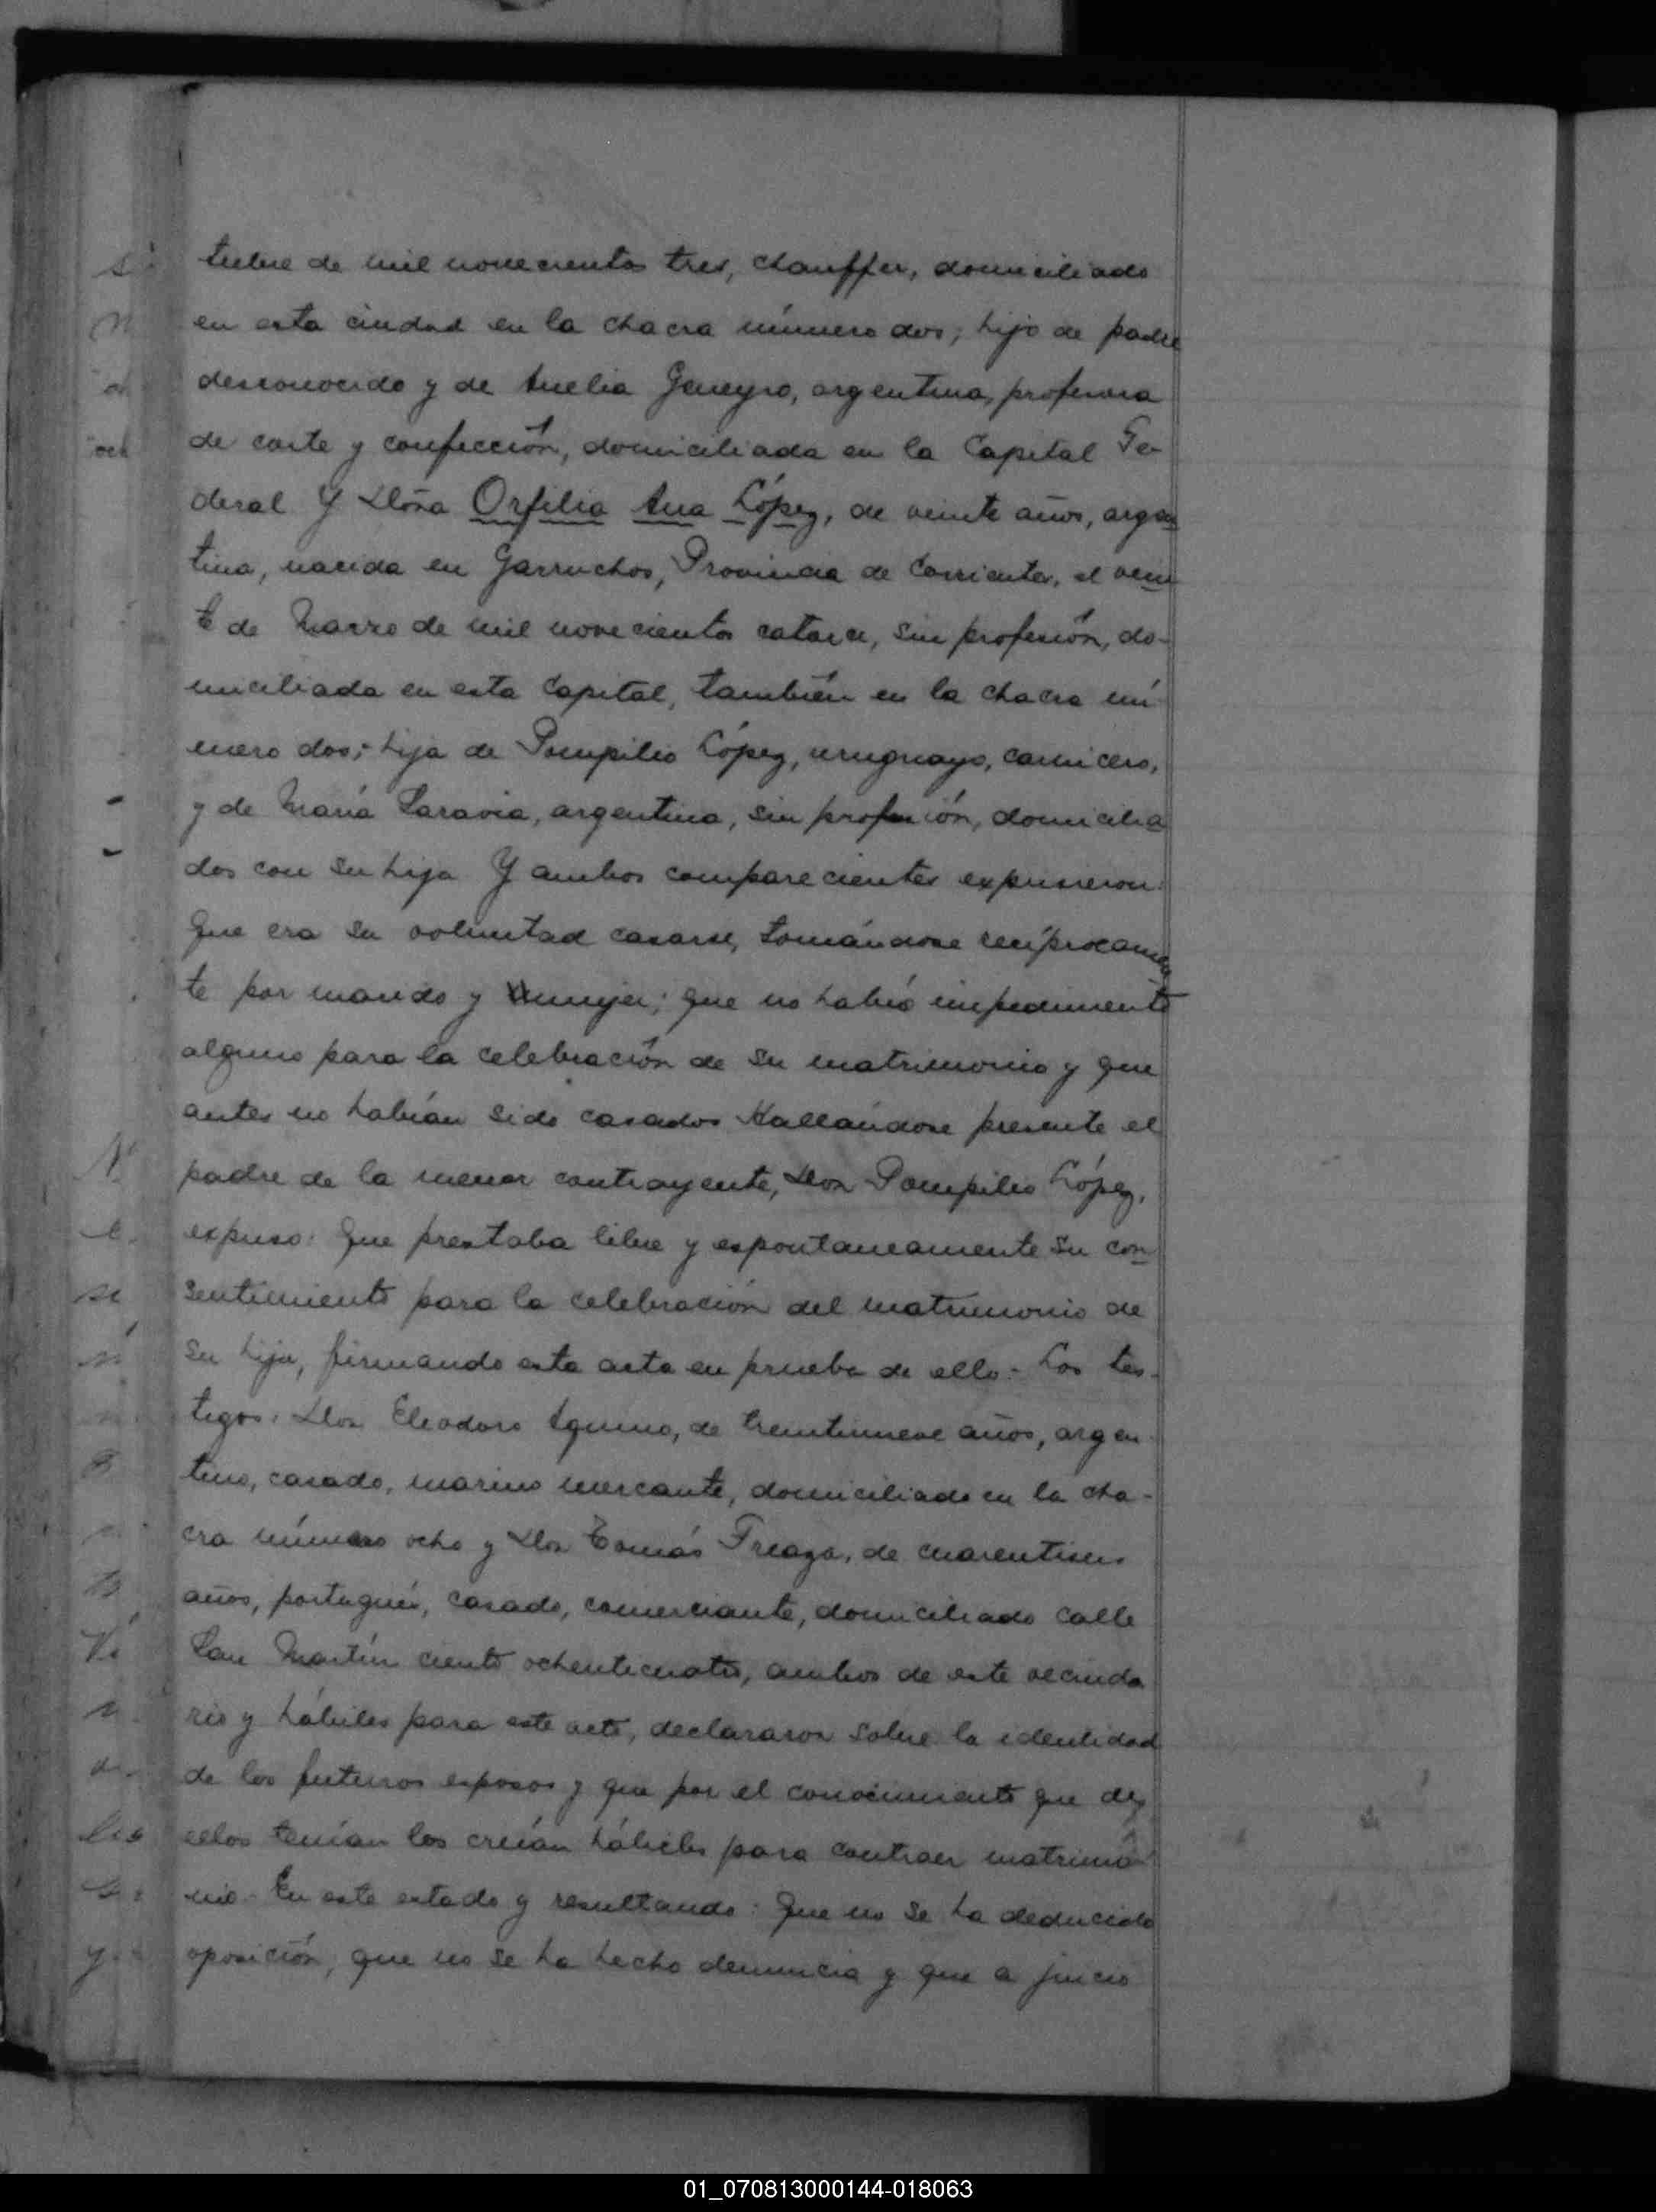 tubre de mil novecientos tres, chauffer, domiciliado
en esta ciudad en la chacra número dos; hijo de padre
desconocido y de Amelia Geneyro, argentina, profesora
de corte y confección, domiciliada en la Capital Fe-
deral Y Doña Orfilia Ana López, de veinte años, argen
tina, nacida en Garruchos, Provincia de Corrientes, el vein
te de Marzo de mil novecientos catorce, sin profesión, do-
miciliada en esta Capital, también en la chacra nú
mero dos; hija de Pompilio López, uruguayo, carnicero,
y de María Saravia, argentina, sin profesión, domicilia
dos con su hija Y ambos comparecientes expusieron:
Que era su voluntad casarse, tomándose recíprocamen
te por marido y mujer; que no había impedimento
alguno para la celebración de su matrimonio y que
antes no habían sido casados Hallándose presente el
padre de la menor contrayente, Don Pompilio López,
expuso: Que prestaba libre y espontaneamente su con
sentimiento para la celebración del matrimonio de
su hija, firmando esta acta en prueba de ello.- Los tes-
tigos: Don Eleodoro Aquino, de treintinueve años, argen
tino, casado, marino mercante, domiciliado en la cha-
cra número ocho y Don Tomás Freaza, de cuarentiseis
años, portugués, casado, comerciante, domiciliado calle
San Martín ciento ochenticuatro, ambos de este vecinda
rio y hábiles para este acto, declararon sobre la identidad
de los futuros esposos y que por el conocimiento que de
ellos tenían los creían hábiles para contraer matrimo
nio.- En este estado y resultando: Que no se ha deducido
oposición, que no se ha hecho denuncia y que a juicio
01_070813000144-018063